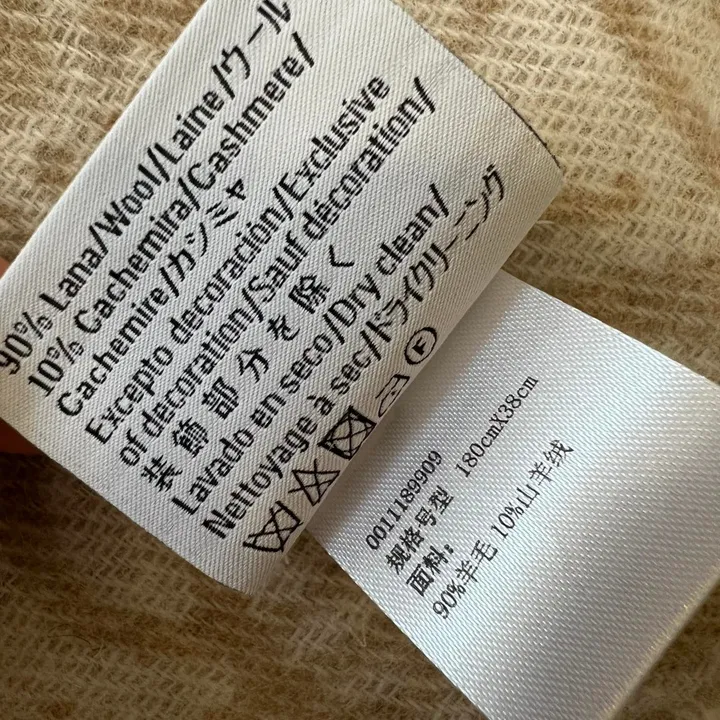 90% Lana/Wool/Laine/ウール
10% Cachemira/Cashmere/
Cachemire/カシミヤ
Excepto decoración/Exclusive
of decoration/Sauf décoration/
装飾部分を除く
Lavado en seco/Dry clean/
Nettoyage à sec/ドライクリーニング
F
0011189909
规格号型 180cmX38cm
面料:
90%羊毛 10%山羊绒